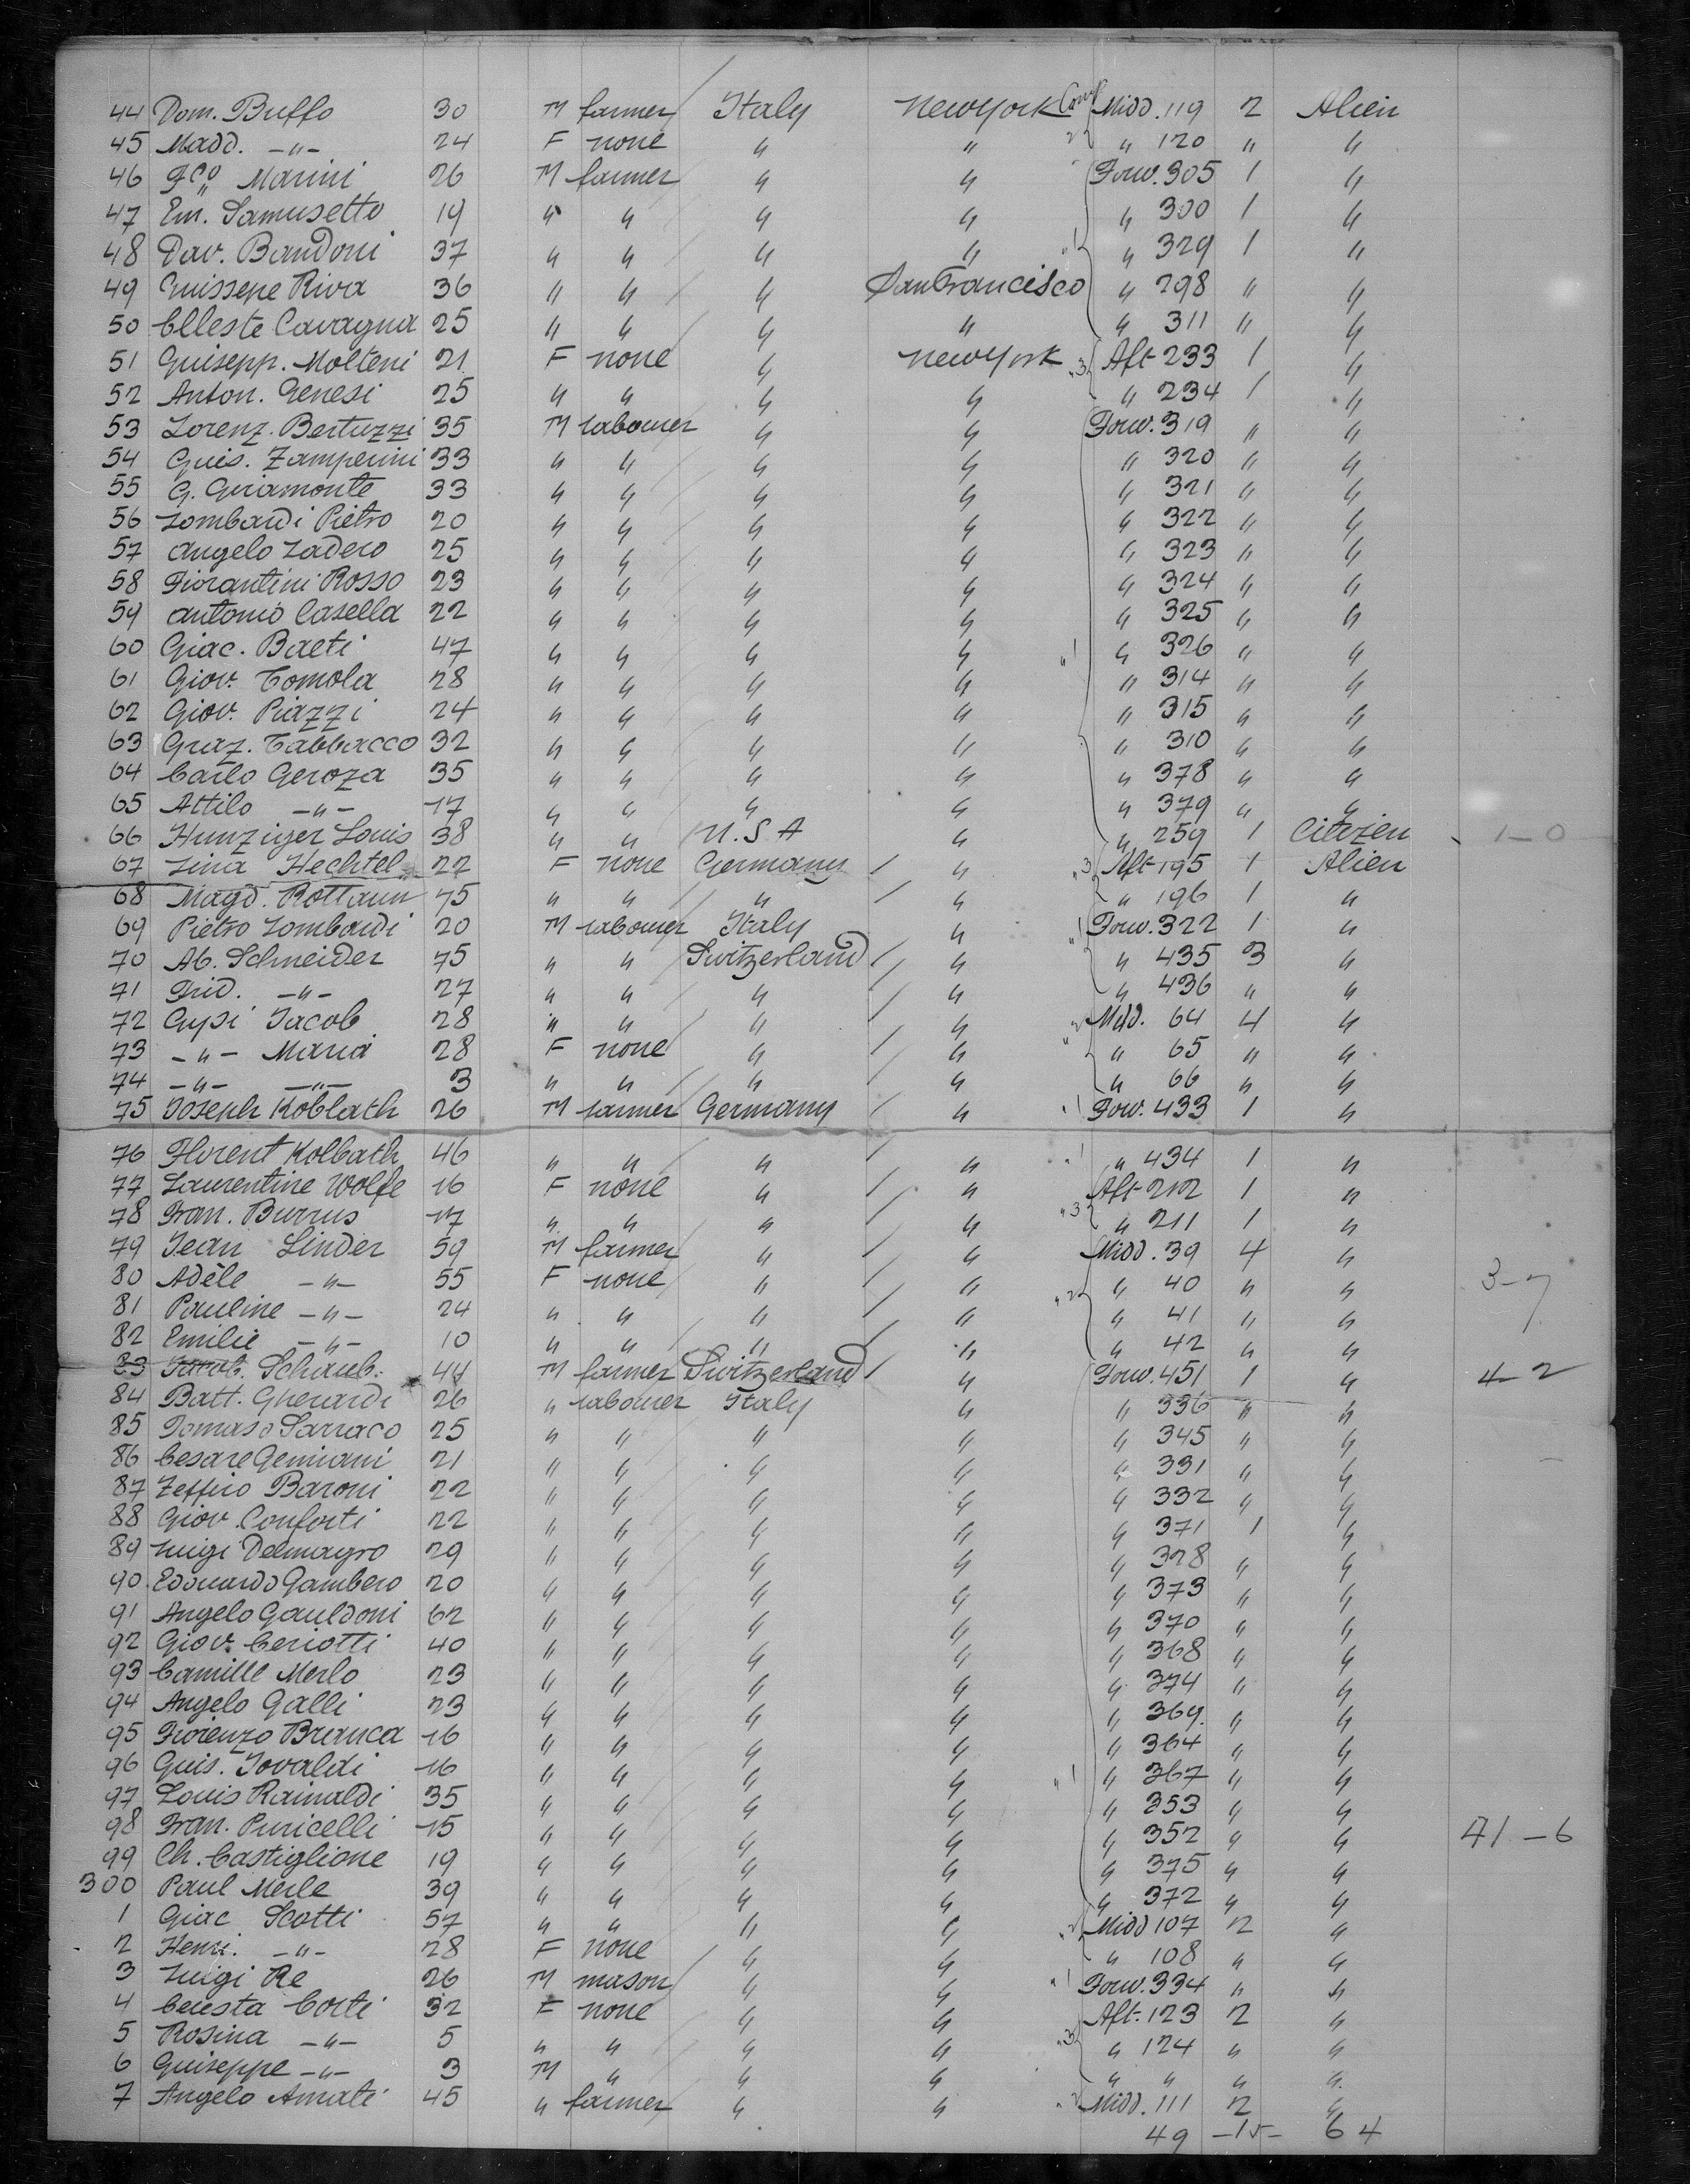 44 Dom. Buffo 30 M farmer Italy New York Comp Midd. 119 2 Alien
45 Madd. -"- 24 F none " " 2 " 120 " "
46 Fco Marini 26 M farmer " " Forw. 305 1 "
47 Em. Samusetto 19 " " " " " 300 1 "
48 Dav. Bandoni 37 " " " " "1 " 329 1 "
49 Guissepe Riva 36 " " " San Francisco " 298 " "
50 Celleste Cavagna 25 " " " " " 311 " "
51 Guisepp. Molteni 21 F none " New York "3 Aft 233 1 "
52 Anton. Genesi 25 " " " " " 234 1 "
53 Lorenz. Bertuzzi 35 M labourer " " Forw. 319 " "
54 Guis. Zamperini 33 " " " " " 320 " "
55 G. Giramonte 33 " " " " " 321 " "
56 Lombardi Pietro 20 " " " " " 322 " "
57 Angelo Ladero 25 " " " " " 323 " "
58 Fiorantini Rosso 23 " " " " " 324 " "
59 Antonio Casella 22 " " " " " 325 " "
60 Giac. Baeti 47 " " " " "1 " 326 " "
61 Giov. Tomola 28 " " " " " 314 " "
62 Giov. Piazzi 24 " " " " " 315 " "
63 Graz. Tabbacco 32 " " " " " 310 " "
64 Carlo Geroza 35 " " " " " 378 " "
65 Attilo -"- 17 " " " " " 379 " "
66 Hunziger Louis 38 " " U.S A " " 259 1 Citizen 1-0
67 Lina Hechtel 22 F none Germany " "3 Aft 195 1 Alien
68 Magd. Rottaun 75 " " " " " 196 1 "
69 Pietro Lombardi 20 M labourer Italy " "1 Forw. 322 1 "
70 Ab. Schneider 75 " " Switzerland " " 435 3 "
71 Frid. -"- 27 " " " " " 436 " "
72 Gysi Jacob 28 " " " " "2 Midd. 64 4 "
73 -"- Maria 28 F none " " " 65 " "
74 -"- -"- 3 " " " " " 66 " "
75 Joseph Koblath 26 M farmer Germany " "1 Forw. 433 1 "
76 Florent Kolbath 46 " " " " "1 " 434 1 "
77 Laurentine Wolfe 16 F none " " Aft 212 1 "
78 Fran. Burrus 17 " " " " "3 " 211 1 "
79 Jean Linder 59 M farmer " " Midd. 39 4 "
80 Adèle -"- 55 F none " " " 40 " " 3-7
81 Pauline -"- 24 " " " " "2 " 41 " "
82 Emilie -"- 10 " " " " " 42 " "
83 Jacob. Schaub. 44 M farmer Switzerland " Forw. 451 1 " 4-2
84 Batt. Gherardi 26 " labourer Italy " " 336 " "
85 Tomaso Sarraco 25 " " " " " 345 " "
86 Cesare Gemiani 21 " " " " " 331 " "
87 Zeffiro Baroni 22 " " " " " 332 " "
88 Giov. Conforti 22 " " " " " 371 1 "
89 Luigi Delmagro 29 " " " " " 328 " "
90 Edouardo Gambero 20 " " " " " 373 " "
91 Angelo Gauldoni 62 " " " " " 370 " "
92 Giov. Ceriotti 40 " " " " " 368 " "
93 Camille Merlo 23 " " " " " 374 " "
94 Angelo Galli 23 " " " " " 369. " "
95 Fiorenzo Branca 16 " " " " " 364 " "
96 Guis. Jovaldi 16 " " " " "1 " 367 " "
97 Louis Rainaldi 35 " " " " " 353 " "
98 Fran. Puricelli 15 " " " " " 352 " " 71-6
99 Ch. Castiglione 19 " " " " " 375 " "
300 Paul Merle 39 " " " " " 372 " "
1 Giac Scotti 57 " " " " "2 Midd 107 2 "
2 Henri. -"- 28 F none " " " 108 " "
3 Luigi Re 26 M mason " " "1 Forw. 334 " "
4 Celesta Corti 32 F none " " Aft. 123 2 "
5 Rosina -"- 5 " " " " "3 " 124 " "
6 Guiseppe -"- 3 M " " " " " " "
7 Angelo Amati 45 " farmer " " "2 Midd. 111 2 "
49 -15- 64